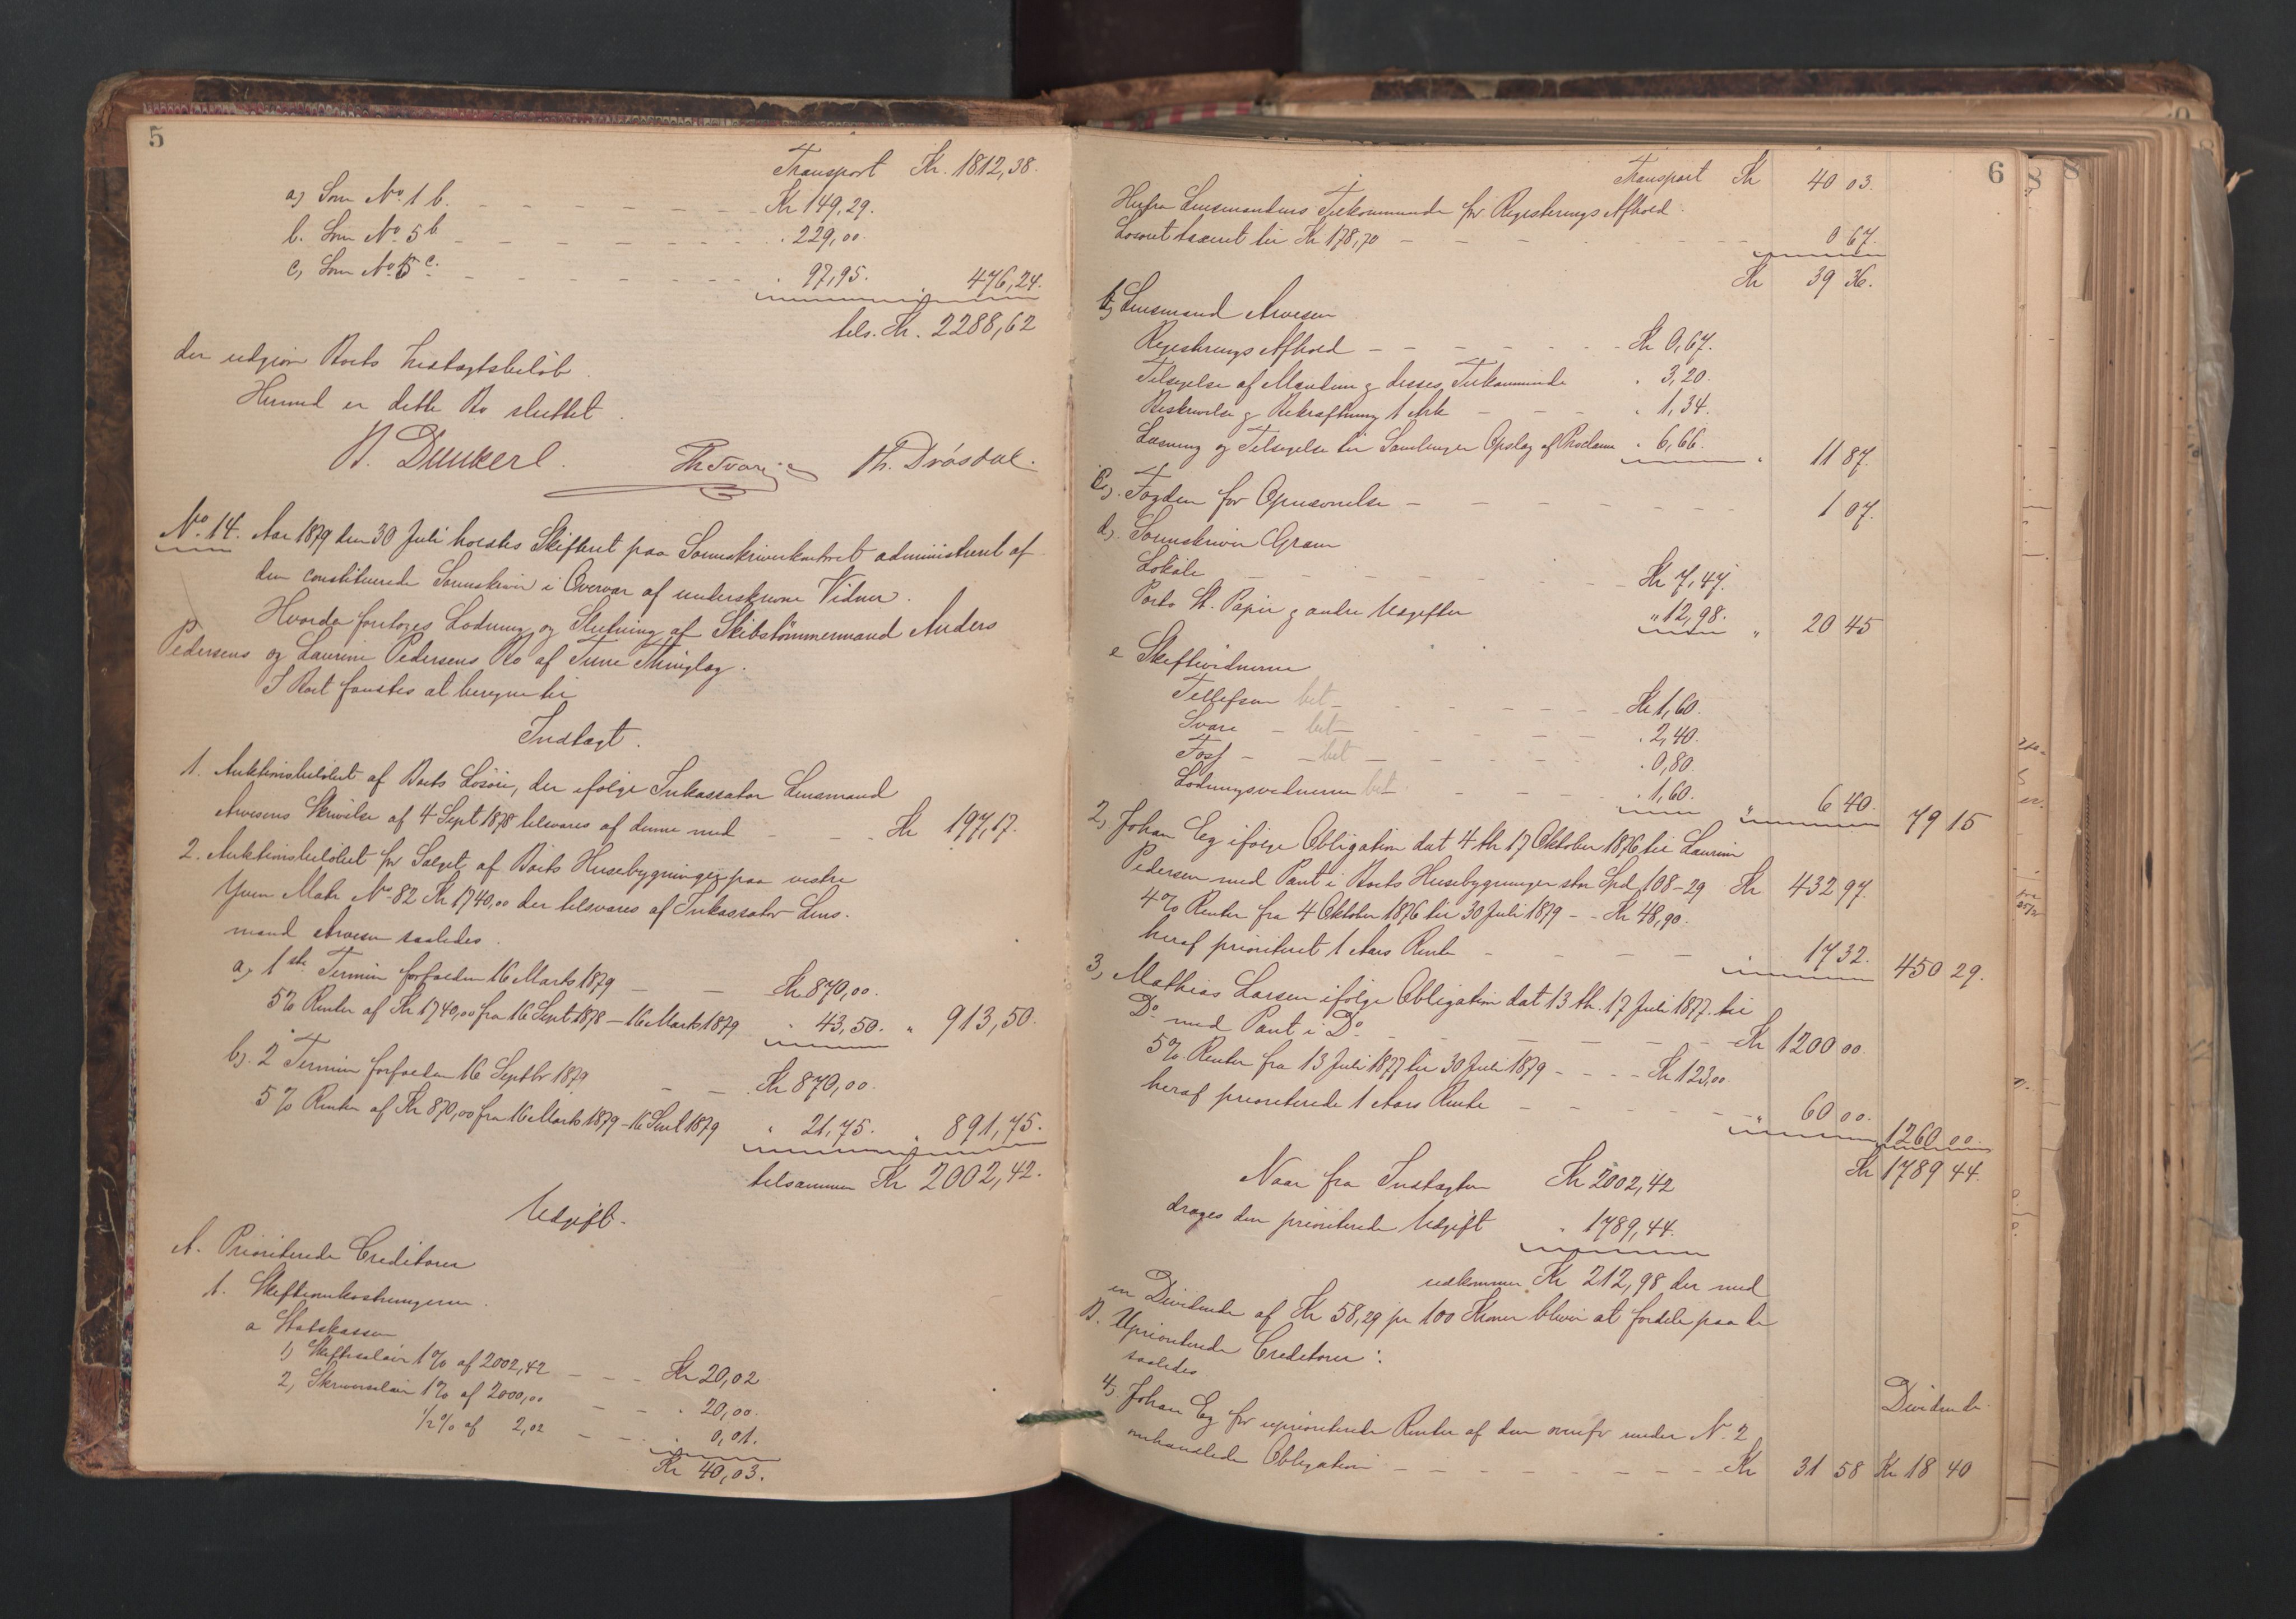 5
Transport Kr. 1812,38.
a) Som No. 1 b. Kr 149,29.
b. Som No. 5 b . 229,00.
c, Som No. 5 c. . 97,95. . 476,24.
tils. Kr. 2288,62
der udgjør Boets Indtægtsbeløb.
Hermed er dette Bo sluttet.
No. 14. Aar 1879 den 30 Juli holdtes Skifteret paa Sorenskriverkontoret administreret af
den constituerede Sorenskriver i Overvær af underskrevne Vidner.
Hvorda foretoges Lodning og Slutning af Skibstømmermand Anders
Pedersens og Laurine Pedersens Bo af Tune Thinglag.
I Boet fandtes at beregne til
Indtægt.
1. Auktionsbeløbet af Boets Løsøre, der ifølge Inkassator Lensmand
Arvesens Skrivelse af 4 Sept 1878 tilsvares af denne med Kr 197,17.
2. Auktionsbeløbet for Salget af Boets Husebygninger paa vestre
Matr No 82 Kr 1740,00 der tilsvares af Inkassator Lens-
mand Arvesen saaledes.
a, 1ste Termin forfalden 16 Marts 1879 Kr 870,00.
5% Renter af Kr 1740,00 fra 16 Sept 1878 – 16 Marts 1879 . 43,50. " 913,50.
b). 2 Termin forfalden 16 Septbr 1879 Kr 870,00.
5% Renter af Kr 870,00 fra 16 Marts 1879 – 16 Sept 1879 " 21,75. . 891,75.
tilsammen Kr 2002,42.
Udgift.
A. Prioriterede Creditorer
1. Skifteomkostningerne.
a Statskassen
1) Skiftesalair 1% af 2002,42 Kr 20,02
2, Skriversalair 1% af 2000,00 . 20,00.
1/2% af 2,02 . 0,01.
Kr 40,03.
6
Transport Kr 40 03.
Herfra Lensmandens Tilkommende for Registrerings Afhold
Løsøret taxeret til Kr 178,70 0 67.
Kr 39 36.
b, Lensmand Arvesen
Registrerings Afhold Kr 0,67.
Tilsigelse af Mændene og disses Tilkommende . 3,20.
Beskrivelse og Bekræftning 1 Ark . 1,34.
Læsning og Tilsigelse til Samlinger Opslag af Proclama . 6,66. . 11 87.
c,. Fogden for Opnævnelse 1 07.
d). Sorenskriver Gram
Lokale Kr 7,47.
Porto St. Papir og andre Udgifter " 12,98. " 20 45
e Skiftevidnerne
Tellefsen bet Kr 1,60.
Svare bet . 2,40.
Foss bet . 0,80
Lodningsvidnerne bet . 1,60. " 6 40. 79 15
2, Johan Eg ifølge Obligation dat 4 th 17 Oktober 1876 til Laurine
Pedersen med Pant i Boets Husebygninger stor Spd 108–29 Kr 432 97.
4% Renter fra 4 Oktober 1876 til 30 Juli 1879 Kr 48,90.
heraf prioriteret 1 Aars Rente 17 32. 450 29.
3, Mathias Larsen ifølge Obligation dat 13 th. 17 Juli 1877. til
Do med Pant i Do Kr 1200 00.
5% Renter fra 13 Juli 1877 til 30 Juli 1879 Kr 123,00.
heraf prioriterede 1 Aars Rente " 60 00. 1260 00.
Kr 1789 44.
Naar fra Indtægten Kr 2002,42
drages den prioriterede Udgift . 1789,44.
udkommer Kr 212,98 der med
en Dividende af Kr 58,29 pr 100 Kroner bliver at fordele paa de
B. Uprioriterede Creditorer:
saaledes
Dividende.
4). Johan Eg for uprioriterede Renter af den ovenfor under No. 2
omhandlede Obligation Kr 31 58 Kr 18 40